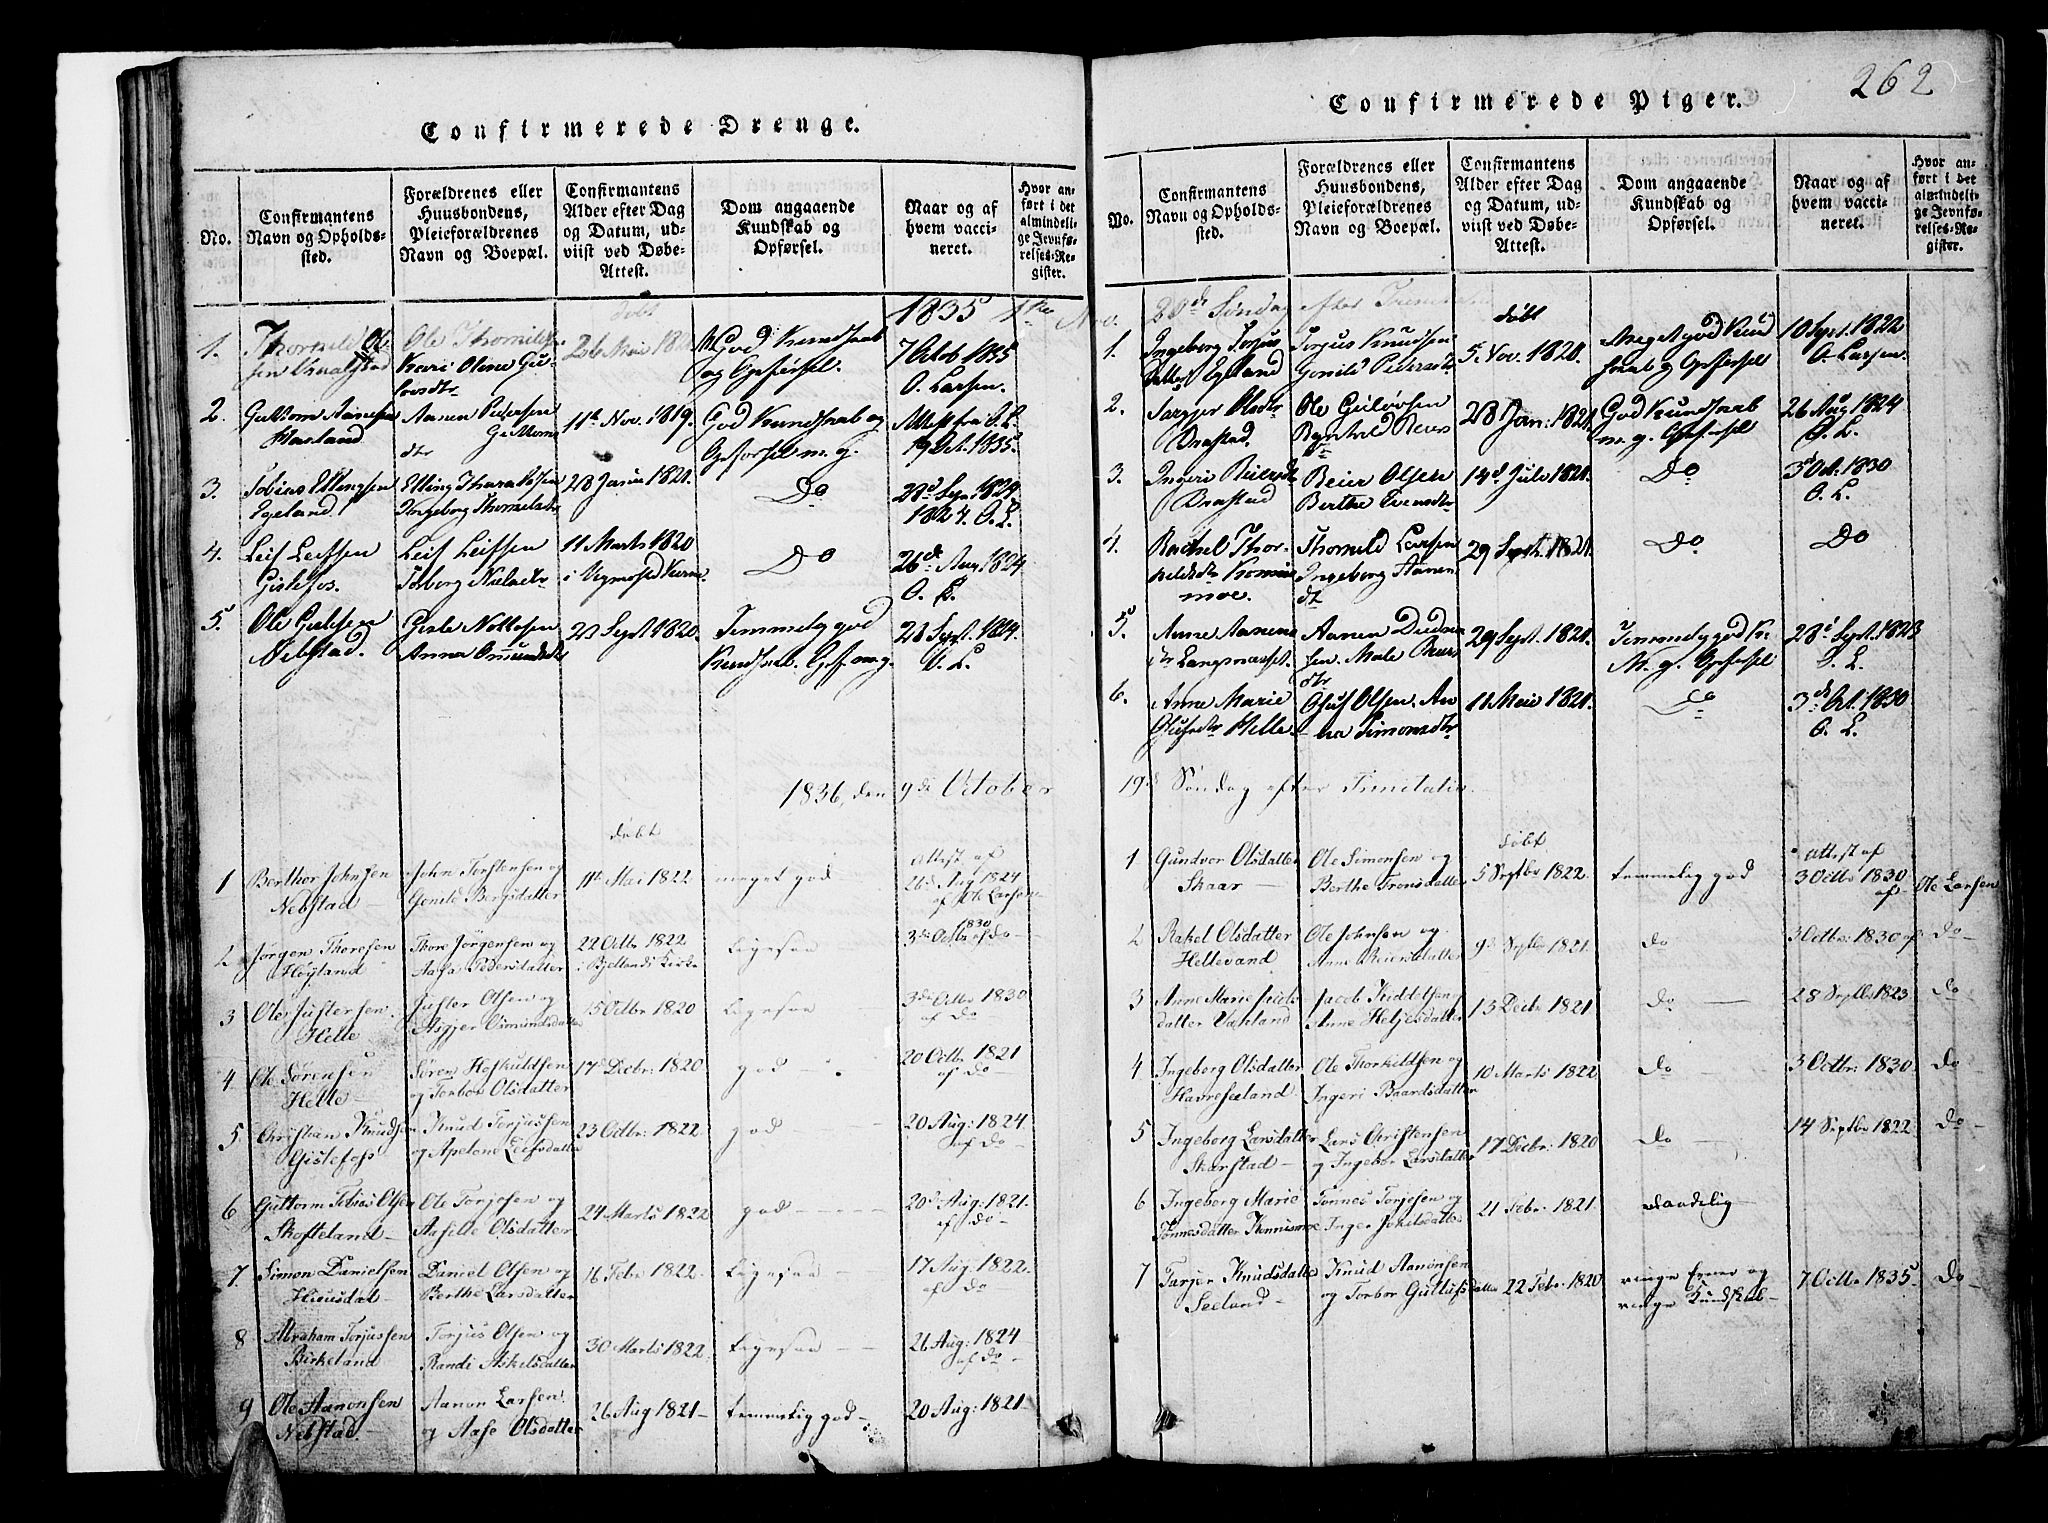 262
Confirmerede Drenge.
No.
Confirmantens
Navn og Opholds-
sted.
Forældrenes eller
Huusbondens,
Pleieforældrenes
Navn og Boepæl.
Confirmantens
Alder efter Dag
og Datum, ud-
viist ved Døbe-
Attest.
Dom angaaende
Kundskab og
Opførsel.
Naar og af
hvem vacci-
neret.
Hvor an-
ført i det
almindeli-
ge Jevnfø-
relses-Re-
gister.
1835 1ste
døbt
1. Ole Thomild
Kari Oline
God Kundskab
og Opførsel.
7 Octob 1835
O. Larsen.
2. Guttorm Aanensen
Haaland
Aanen Pedersen
dtr
11te Nov. 1819.
God Kundskab og
Opførsel m. g.
Attest fra O. L.
19 Oct. 1835.
3. Tobias Ellingsen
Egeland
Elling
Ingeborg
28 Janu 1821.
Do
28d Sep. 1824
1824. O. L.
4. Leif Leifsen
Gislefos.
Leif Leifsen
Nielsdtr
11 Marts 1820
i
Do
26de Aug 1824
O. L.
5. Ole Gislesen
Nebstad.
Gisle
Anna Omundsdtr
Sept 1820
Temmelig god
Kundskab. Opf. m. g.
28 Sept. 1824.
O. L.
1836, den 9de October
døbt
1 Berthor Johnsen
Nebstad
John Torstensen og
Gonild Bergsdatter
11te Mai 1822
meget god
Attest af
26d Aug 1824
af Ole Larsen
2 Jørgen Thoresen
Høyland
Thore Jørgensen og
Aasa Pedersdatter
22 Octbr 1822
i Bjellands Kirke
Ligesaa
1830
3de Octbr af do
3 Ole Justersen
Helle
Juster Olsen og
Asgjer Omundsdatter
15 Octbr 1820
Ligesaa
3de Octbr 1830
af do
4 Ole Sørensen
Helle
Søren Heskuldsen
og Torbor Olsdatter
17d Decbr: 1820
god
20 Octbr 1821
af do
5 Christian Knudsen
Gislefoss
Knud Torjussen
og Apelone Leifsdatter
23 Octbr: 1822
god
20 Aug: 1824
af do
6 Guttorm Tobias Olsen
Skofteland
Ole Torjesen og
Aaselle Olsdatter
24 Marts 1822
god
20d Aug: 1821.
af do
7 Simon Danielsen
Daniel Olsen og
Berthe Larsdatter
16 Febr 1822.
Ligesaa
17 Aug: 1822.
af do
8 Abraham Torjussen
Birkeland
Torjus Olsen og
Randi Askelsdatter
30 Marts 1822.
Ligesaa
26 Aug: 1824
af do
9 Ole Aanonsen
Nebstad.
Aanon Larsen
og Aase Olsdatter
26 Aug 1821
temmelig god
20 Aug: 1821
Confirmerede Piger.
No.
Confirmantens
Navn og Opholds-
sted.
Forældrenes eller
Huusbondens,
Pleieforældrenes
Navn og Boepæl.
Confirmantens
Alder efter Dag
og Datum, ud-
viist ved Døbe-
Attest.
Dom angaaende
Kundskab og
Opførsel.
Naar og af
hvem vacci-
neret.
Hvor an-
ført i det
almindeli-
ge Jevnfø-
relses-Re-
gister.
20de Søndag efter Trinitatis
døbt
1. Ingeborg Torjus
datter Egeland
Torjus Knudsen
Gonild Pedersdtr
5 Nov. 1820.
Meget god Kund
skab og Opførsel
10 Sept. 1822
O. Larsen.
2. Olsdtr
Drastad.
Ole
Reiers
28 Jan: 1821.
God Kundskab
m. g. Opførsel
26 Aug 1824
O. L.
3. Ingeri Reiersdtr
Drastad
Reier Olsen
Berthe
14d Juli 1821.
Do
3d Oct. 1830
O. L.
4. Rachel Thor-
moe.
Larsen
Ingeborg Aanen
dtr
29 Sept. 1821.
Do
Do
5. Anne Aanens
dtr
Aanen
sen. Reiers
dtr
29 Sept. 1821.
Temmelig god K.
M. g. Opførsel
28d Sept. 1823
O. L.
6. Anne Marie
Olufsdtr Helle.
Oluf Olsen. An
na Simonsdtr
11 Mai 1821.
Do
3de Oct. 1830
O. L.
19d Søndag efter Trinitatis.
døbt
1 Gundvor Olsdatter
Skaar
Ole Simonsen og
Berthe Tronsdatter
5 Septbr 1822.
temmelig god
attest af
3 Octbr 1830
af Ole Larsen
2 Rakel Olsdatter
Hellevand
Ole Johnsen og
Anne Reiersdatter
9d Septbr 1821.
do
3 Octbr: 1830 af do
3 Anne Marie Jacobs
datter
Jacob Kiddelsen
Anne Heljesdatter
13 Decbr 1821
do
28 Septbr 1823 do
4 Ingeborg Olsdatter
Ole Thorkildsen og
Ingeri Baardsdatter
10 Marts 1822.
do
3 Octbr: 1830 do
5 Ingeborg Larsdatter
Skarstad
Lars Christensen
og Ingebor Larsdatter
17 Decbr: 1820
do
14 Septbr 1822 do
6 Ingeborg Marie
Tønnesdatter
Tønnes Torjesen og
Inger Jokelsdatter
21 Febr: 1821.
maadelig
7 Tarjer Knudsdatter
Seeland
Knud Aanonsen
og Torbor
22 Febr: 1820
ringe Evner og
ringe Kundskab
7 Octbr 1835. do